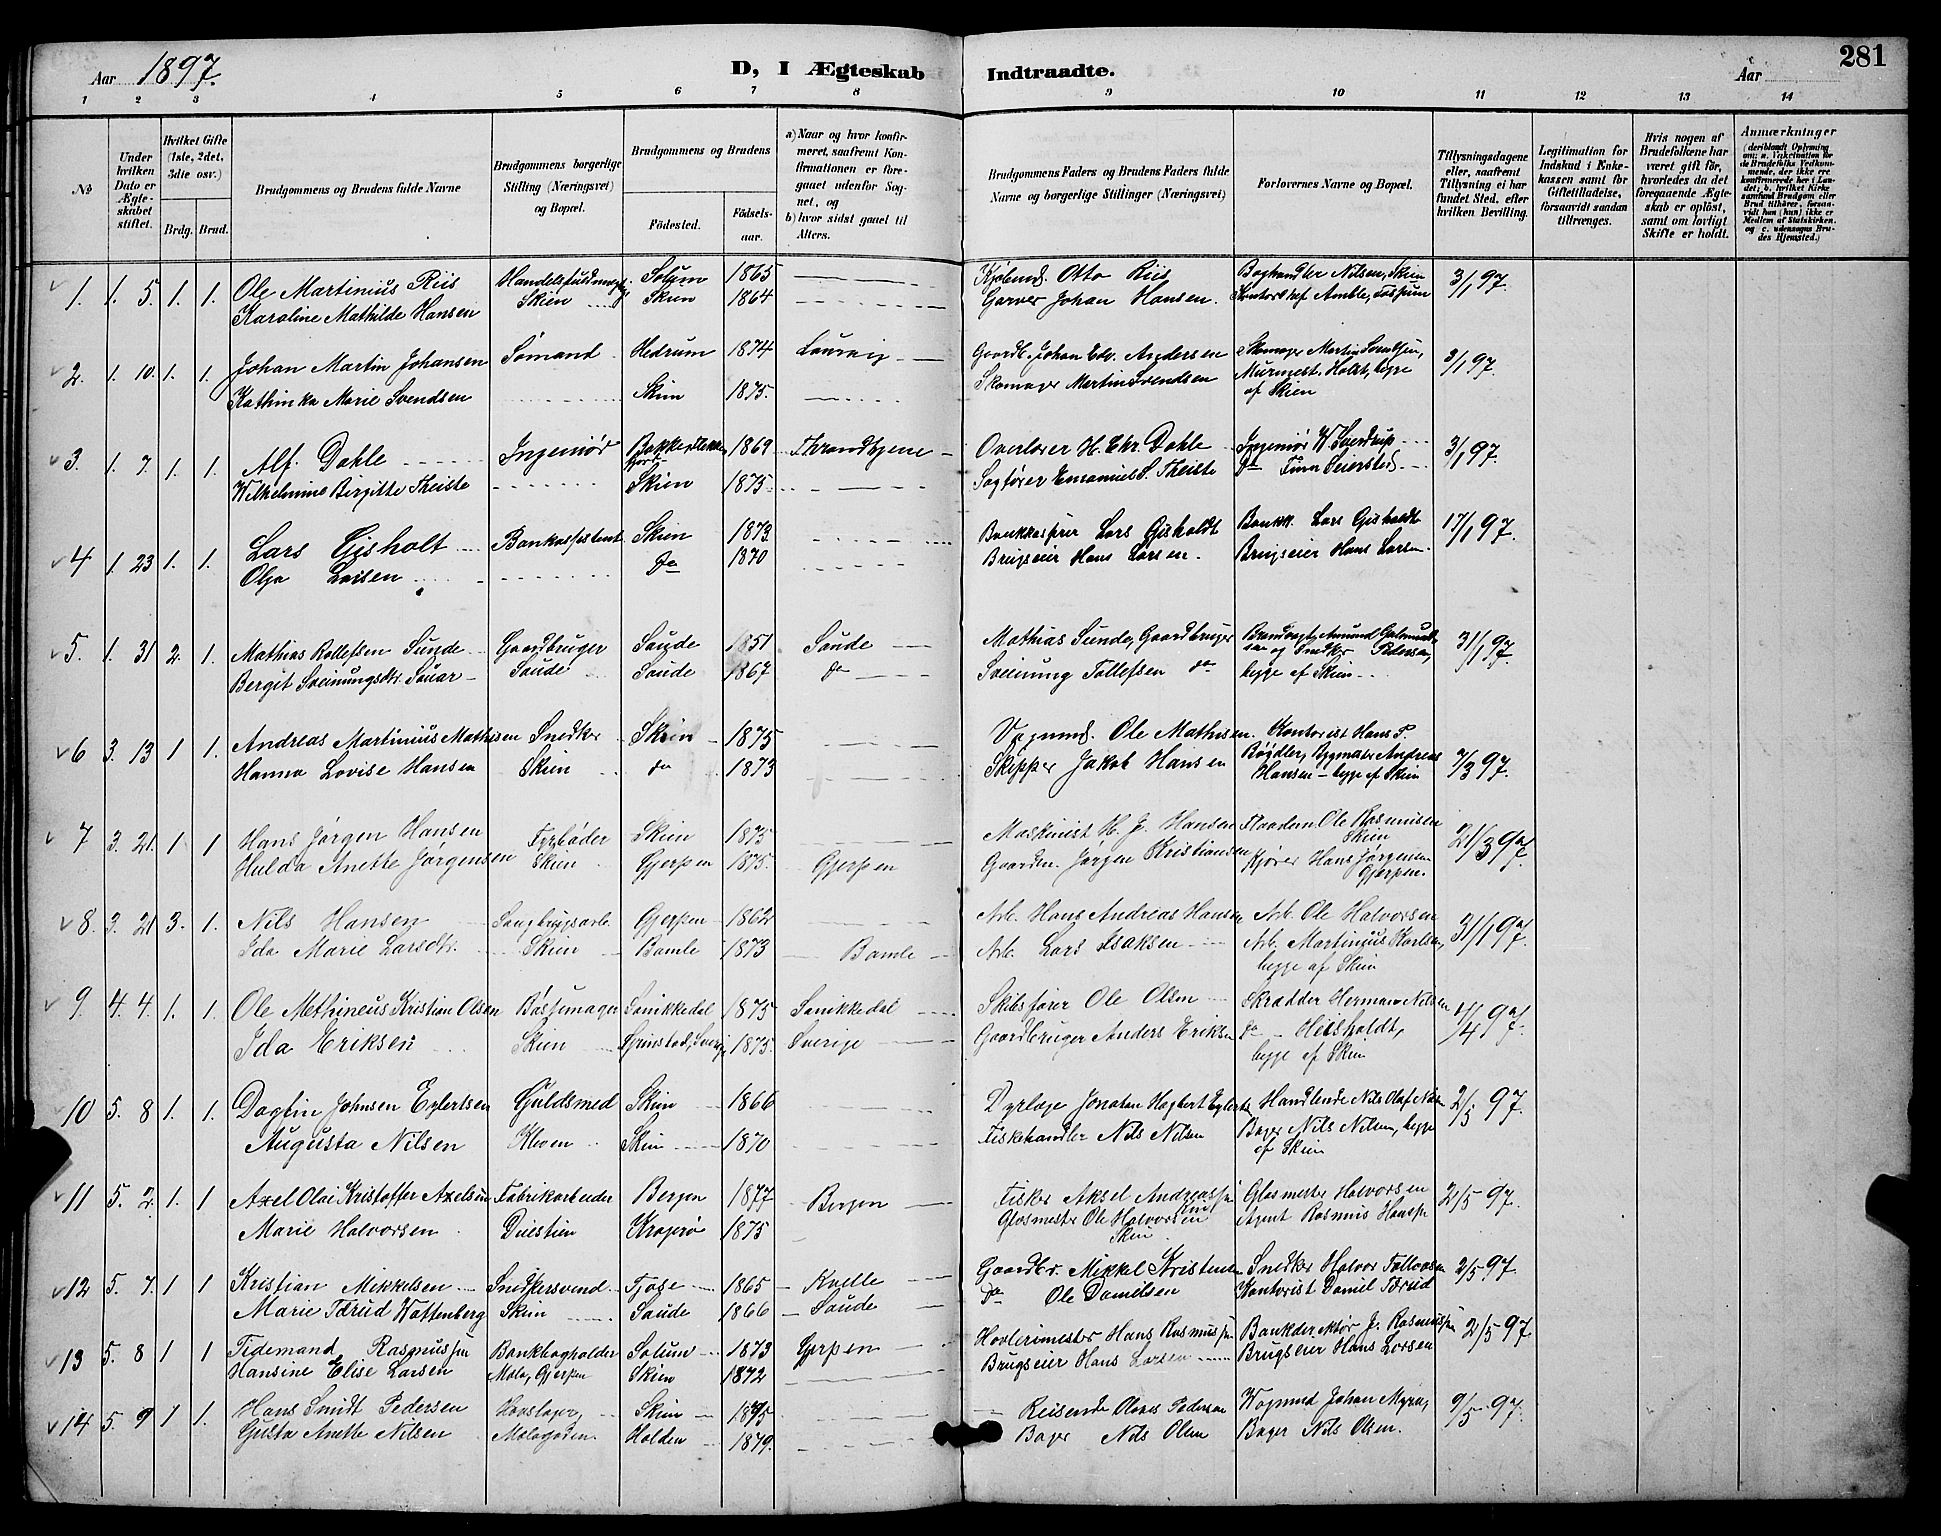 281
Aar 1897.
D, I Ægteskab Indtraadte.
Aar
1 2 3 4 5 6 7 8 9 10 11 12 13 14
No
Under hvilken Dato er Ægteskabet stiftet.
Hvilket Gifte (1ste, 2det, 3die osv.)
Brdg. Brud.
Brudgommens og Brudens fulde Navne
Brudgommens borgerlige Stilling (Næringsvei) og Bopæl.
Brudgommens og Brudens
Fødested. Fødselsaar.
a) Naar og hvor konfirmeret, saafremt Konfirmationen er foregaaet udenfor Sognet, og
b) hvor sidst gaaet til Alters.
Brudgommens Faders og Brudens Faders fulde Navne og borgerlige Stillinger (Næringsvei)
Forlovernes Navne og Bopæl.
Tillysningsdagene eller, saafremt Tillysning ei har fundet Sted, efter hvilken Bevilling.
Legitimation for Indskud i Enkekassen samt for Giftetilladelse, forsaavidt saadan tiltrænges.
Hvis nogen af Brudefolkene har været gift før, hvorledes da det foregaaende Ægteskab er opløst, samt om lovligt Skifte er holdt.
Anmærkninger (deriblandt Oplysning om: a. Vakcination for de Brudefolks Vedkommende, der ikke ere konfirmerede her i Landet; b. hvilket Kirkesamfund Brudgom eller Brud tilhører, forsaavidt han (hun) ikke er Medlem af Statskirken, og c. udensogns Brudes Hjemsted.)
1. 1. 5. 1. 1. Ole Martinius Riis Handelsfuldmægtig Solum 1865 Kjøbmd. Otto Riis Boghandler Nilsen, Skien 3/1 97.
Karoline Mathilde Hansen Skien Skien 1864 Garver Johan Hansen. Kontorchef Amble,
2. 1. 10. 1. 1. Johan Martin Johansen Sømand Hedrum 1874 Laurvig Gaardb. Johan Edv. Andersen Skomager Martin Svendsen, 3/1 97.
Kathinka Marie Svendsen Skien 1875. Skomager Martin Svendsen Murmest. Holst, begge
af Skien
3. 1. 7. 1. 1. Alf. Dahle Ingeniør 1869 Throndhjem Overlærer H. Chr. Dahle Ingeniør W. Sverdrup 3/1 97.
Wilhelmine Birgitte Theiste Skien 1875. Sagfører Emanuel S. Theiste Do Finn Seiersted
4 1. 23 1. 1. Lars Gisholt Bankassistent Skien 1873 Bankkasserer Lars Gisholdt Bankk. Lars Gisholdt 17/1 97.
Olga Larsen Do 1870 Brugseier Hans Larsen. Brugseier Hans Larsen.
5. 1. 31 2. 1. Mathias Rollefsen Sunde Gaardbruger Saude 1851 Saude Mathias Sunde, Gaardbruger Brandvagt, Amund 31/1 97.
Bergit Sveinungsdr. Sauar Saude Saude 1867 do Sveinung Tollefsen do og Snedker Pedersen,
begge af Skien
6 3. 13 1 1. Andreas Martinius Mathisen Snedker Skien 1875 Vognmd. Ole Mathisen. Kontorist Hans P. 7/3 97.
Hanna Lovise Hansen Skien do 1873 Skipper Jakob Hansen Bøgdler, Bygmester Andreas
Hansen – begge af Skien
7 3. 21. 1 1 Hans Jørgen Hansen Fyrbøder Skien 1873 Maskinist H. J. Hansen Ole Rasmusen 21/3 97.
Skien
Hulda Anette Jørgensen Skien Gjerpen 1875. Gjerpen Gaardm. Jørgen Kristiansen Kjører Hans Jørgensen
Gjerpen.
8. 3. 21 3. 1. Nils Hansen Saugbrugsarb. Gjerpen 1862 Arb. Hans Andreas Hansen Arb. Ole Halvorsen 31/1 97.
Ida Marie Larsdtr. Skien Bamle 1873 Bamle Arb. Lars Isaksen Arb. Martinius Karlsen,
begge af Skien
9. 4. 4. 1. 1. Ole Methineus Kristian Olsen Bøssemager Sanikkedal 1875 Sanikkedal Skibsfører Ole Olsen Skrædder Herman Nilsen 4/4 97.
Ida Eriksen Skien Sverige 1875. Sverige Gaardbruger Anders Eriksen do Heisholdt,
begge af Skien
10 5. 8 1. 1. Dagfin Johnsen Eylertsen Guldsmed Skien 1866 Dyrlæge Jonatan Hagbert Eylerts. Handlende Nils Olaf Nilsen 2/5 97.
Augusta Nilsen Kleven Skien 1870 Fiskehandler Nils Nilsen Bager Nils Nilsen, begge
af Skien
11 5. 2. 1. 1 Axel Olai Kristoffer Axelsen Fabrikarbeider Bergen 1877 Bergen Fisker Aksel Andreassen Glasmester Halvorsen 2/5 97.
Marie Halvorsen Duestien Kragerø 1875 Glasmester Ole Halvorsen Agent Rasmus Hansen
Skien.
12 5. 7. 1 1 Kristian Mikkelsen Snedkersvend Tjøse 1865 Kvelle Gaardbr. Mikkel Kristensen Snedker Halvor Tollovsen 2/5 97
Marie Tærud Wattenberg Skien Saude 1866 Saude Do Ole Danielsen Kontorist Daniel Tærud
13 5. 8 1 1 Tidemand Rasmussen Bankbogholder Solum 1873 Gjerpen Hovlerimester Hans Rasmussen Bankdirektør J. Rasmussen 2/5 97
Hansine Elise Larsen Mæla, Gjerpen Skien 1872 Brugseier Hans Larsen Brugseier Hans Larsen
14 5. 9 1 1. Hans Smidt Pedersen Hovslager, Skien 1875 Reisende Pedersen Vognmd Johan Myra, 9/5 97.
Gusta Anette Nilsen Mælagaden. Holden 1879. Bager Nils Olsen Bager Nils Olsen.